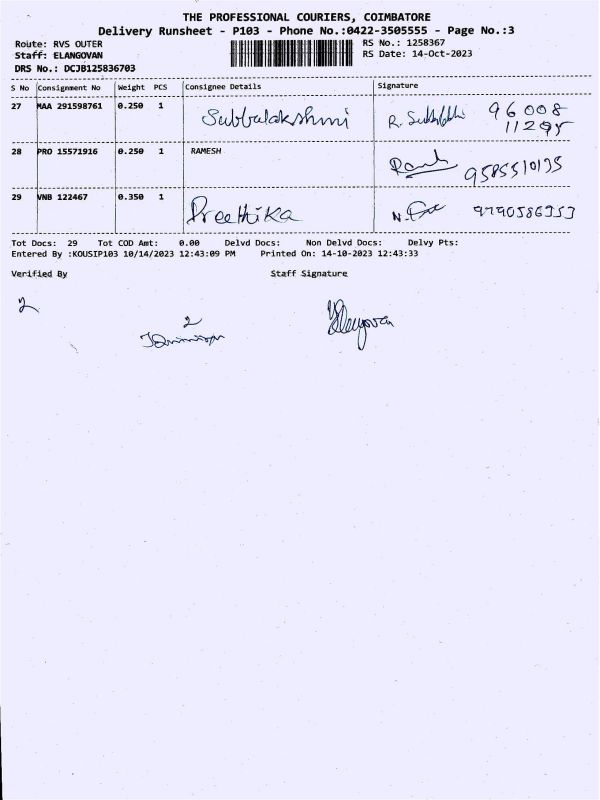 THE PROFESSIONAL COURIERS, COIMBATORE
Delivery Runsheet - P103 - Phone No.:0422-3505555 - Page No.:3
Route: RVS OUTER
RS No.: 1258367
Staff: ELANGOVAN
RS Date: 14-Oct-2023
DRS No.: DCJB125836703
S No Consignment No Weight PCS Consignee Details Signature
27 MAA 291598761 0.250 1 Subbalakshmi R. 96008
11295
28 PRO 15571916 0.250 1 RAMESH 9585510135
29 VNB 122467 0.350 1 Preethika 9790586353
Tot Docs: 29 Tot COD Amt: 0.00 Delvd Docs: Non Delvd Docs: Delvy Pts:
Entered By :KOUSIP103 10/14/2023 12:43:09 PM Printed On: 14-10-2023 12:43:33
Verified By Staff Signature
2
2
Elangovan